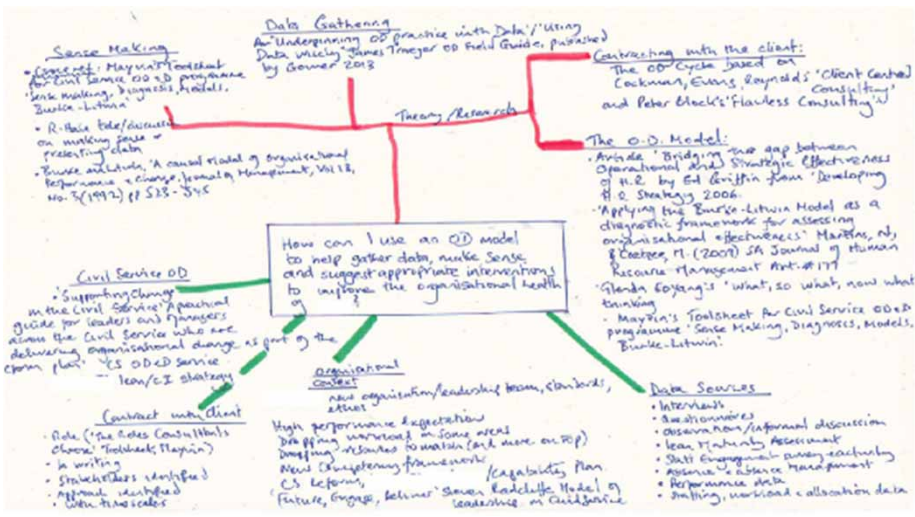 Data Gathering
An 'Underpinning OD practice with Data' / 'Using
Data wisely' James Traeger OD Field Guide, published
by Gower 2013
Sense Making
Mayvin's Toolsheet
for Civil Service OD&D programme
'Sense making, Diagnosis, Models,
Burke-Litwin'
on making sense +
presenting data
'A causal model of Organisational
Performance & Change, Journal of Management, Vol 18,
No. 3 (1992) pp 523-545
Theory/Research
Contracting with the client:
The OD Cycle based on
Cockman, Evans, Reynolds 'Client Centred
Consulting'
and Peter Block's 'Flawless Consulting'
The O.D. Model:
Article 'Bridging the gap between
Operational and Strategic Effectiveness
of H.R. by Ed Griffin from 'Developing
H.R. Strategy 2006
'Applying the Burke-Litwin Model as a
diagnostic framework for assessing
organisational effectiveness' Martins, N,
& Coetzee, M. (2009) SA Journal of Human
Resource Management Art. #177
'What, so what, now what'
thinking
- Mayvin's Toolsheet for Civil Service OD&D
programme 'Sense Making, Diagnosis, Models,
Burke-Litwin'
How can I use an OD model
to help gather data, make sense
and suggest appropriate interventions
to improve the organisational health
of
?
Civil Service OD
• 'Supporting Change
in the Civil Service' A practical
guide for leaders and managers
across the Civil Service who are
delivering organisational change as part of the
reform plan' CS OD&D Service
lean/CI strategy
Contract with Client
• Role ('The Roles Consultants
Choose' Toolsheet, Mayvin)
• In writing
• Stakeholders identified
• Approach identified
• With timescales
Organisational
Context
new organisation/leadership team, standards,
ethos
High performance expectation
Dropping workload in some areas
Dropping resources to match (and more on top)
New Competency framework
CS Reform, /Capability Plan
'Future, Engage, Deliver' Steven Radcliffe Model of
leadership
Data Sources
• Interviews
• Questionnaires
• Observation/informal discussion
• Lean Maturity Assessment
• Staff Engagement survey
• Absence + absence Management
• Performance data
• Staffing, workload + allocation data